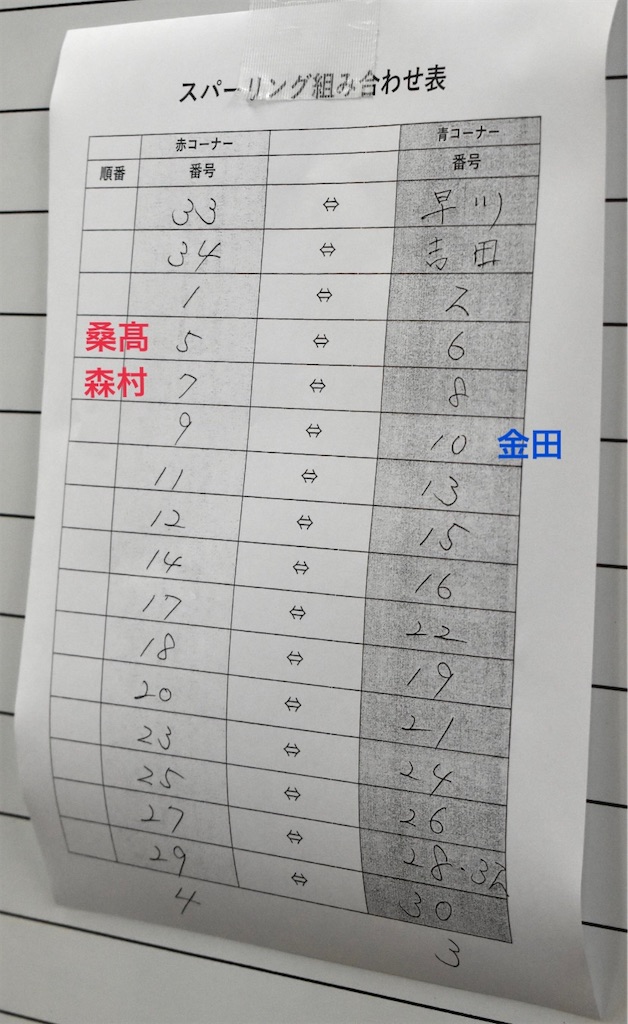 スパーリング組み合わせ表
赤コーナー 青コーナー
順番 番号 番号
33 ⇔ 早川
34 ⇔ 吉田
1 ⇔ 2
桑髙 5 ⇔ 6
森村 7 ⇔ 8
9 ⇔ 10 金田
11 ⇔ 13
12 ⇔ 15
14 ⇔ 16
17 ⇔ 22
18 ⇔ 19
20 ⇔ 21
23 ⇔ 24
25 ⇔ 26
27 ⇔ 28・32
29 ⇔ 30
4 3